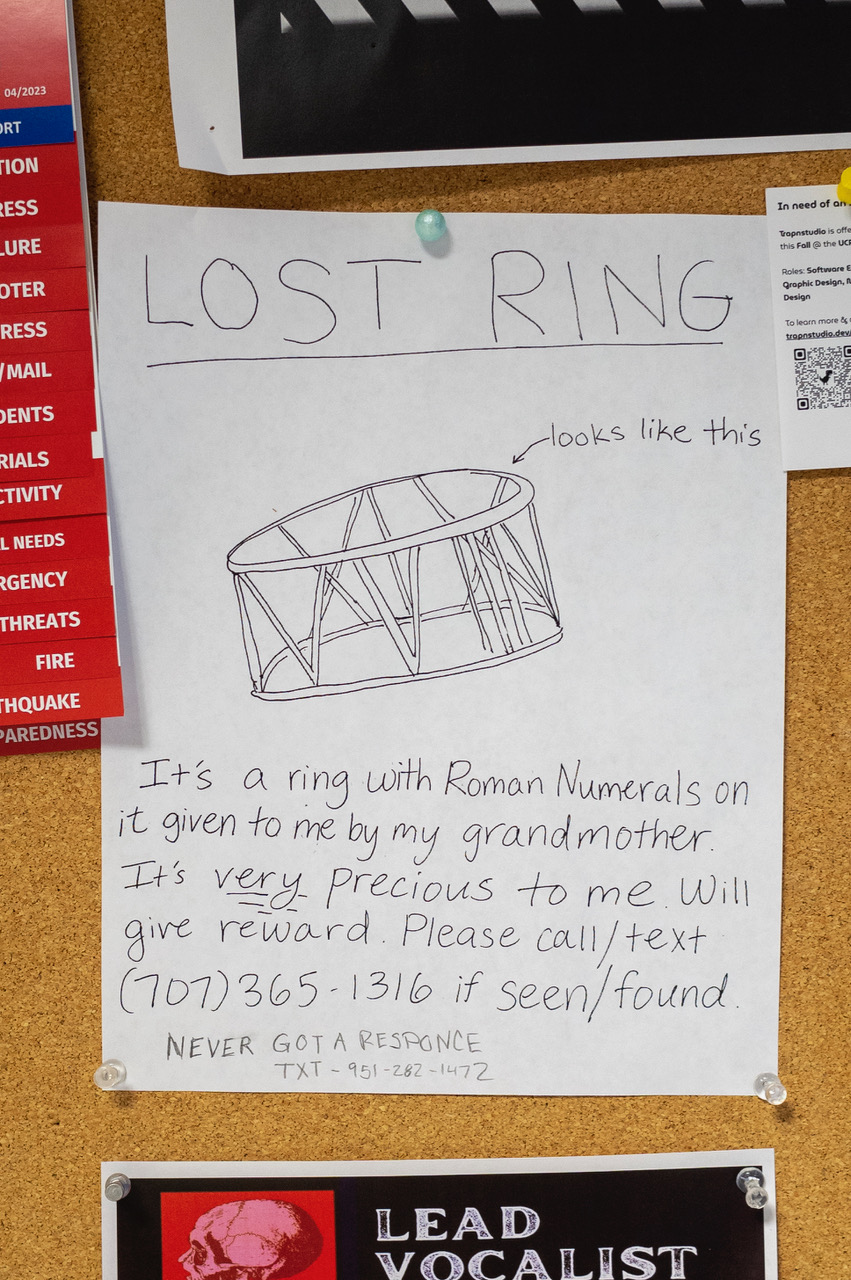 04/2023
ORT
TION
RESS
LURE
OTER
RESS
/MAIL
DENTS
RIALS
CTIVITY
L NEEDS
RGENCY
THREATS
FIRE
THQUAKE
PAREDNESS
LOST RING
looks like this
It's a ring with Roman Numerals on
it given to me by my grandmother.
It's very precious to me. Will
give reward. Please call/text
(707)365-1316 if seen/found.
NEVER GOT A RESPONCE
TXT - 951-282-1472
In need of an
Trapnstudio is offe
this Fall @ the UCR
Roles: Software E
Graphic Design,
Design
To learn more &
trapnstudio.dev/
LEAD
VOCALIST